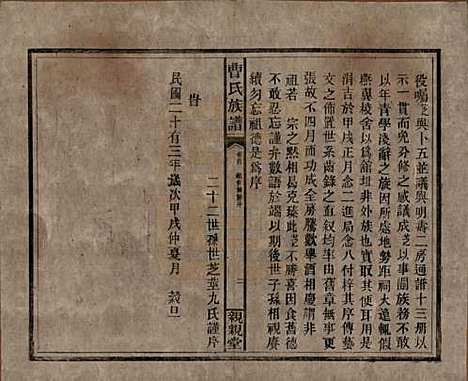 役囑芝與卜五並議與明壽二房通譜十三冊以
示一貫而免分修之感議成芝以事關族務不敢
以年青學淺辭之族因所處地勢距祠大遠輒假
燕翼稜舍以爲舘垣非外族也實取其便耳用是
涓吉於甲戌正月念二進局念八付梓其序傳藝
文之佈置世系齒錄之直叙均率由舊章無事更
張故不四月而功成全房騰歡舉酒相慶謂非
祖若 宗之默相曷克臻此芝不勝喜因食舊德
不敢忍忘謹弁數語於端以期後世子孫相視賡
續勿忘祖德是爲序
旹
民國二十有三年歲次甲戌仲夏月 穀旦
二十二世孫世芝華九氏謹序
曹氏族譜
卷首
二
親親堂